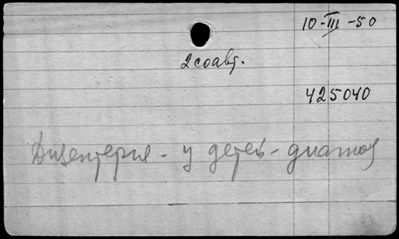 10-III-50
2 соавт.
425040
Дизентерия - у детей - диагноз